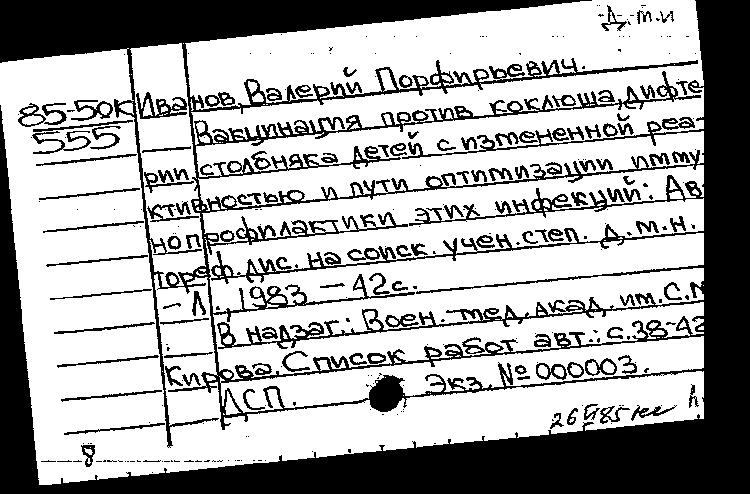 Д.т.и
85-50К Иванов, Валерий Порфирьевич.
555 Вакцинация против коклюша, дифте-
рии, столбняка детей с измененной реа-
ктивностью и пути оптимизации имму-
нопрофилактики этих инфекций: Ав-
тореф. дис. на соиск. учен. степ. д.м.н.
- Л., 1983. - 42с.
В надзаг.: Воен.-мед. акад. им. С.М
Кирова. Список работ авт.: с.38-42
ДСП. Экз. № 000003.
8